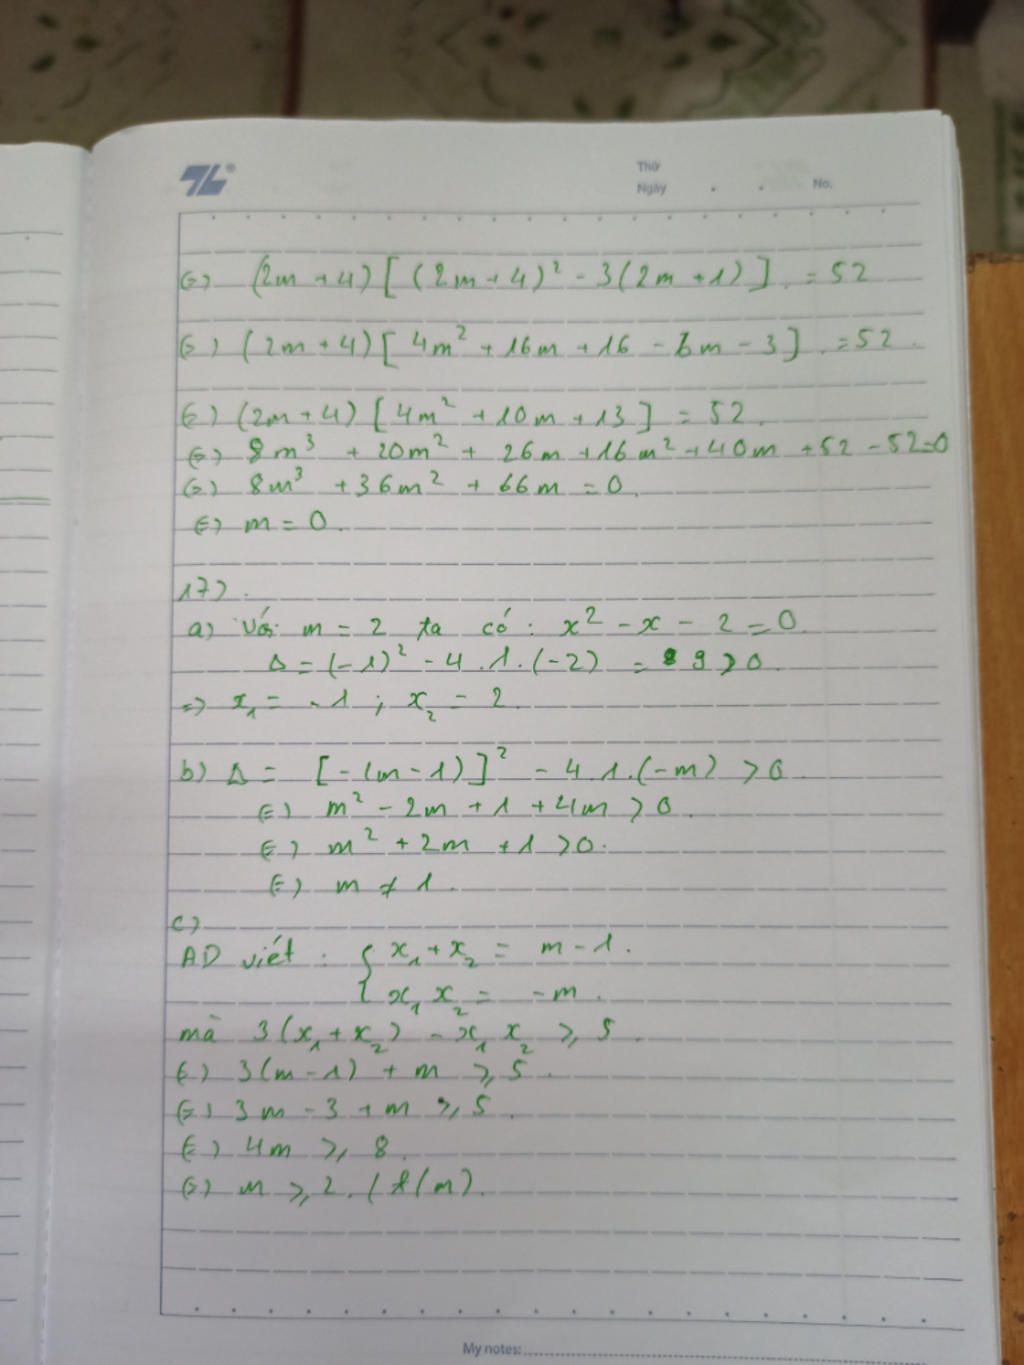 TL®
Thứ
Ngày . . No.
(=) (2m + 4) [ (2m + 4)² - 3(2m + 1) ] = 52
(=) (2m + 4) [ 4m² + 16m + 16 - 6m - 3 ] = 52.
(=) (2m + 4) [ 4m² + 10m + 13 ] = 52.
(=) 8m³ + 20m² + 26m + 16m² + 40m + 52 - 52 = 0
(=) 8m³ + 36m² + 66m = 0.
(=) m = 0.
17).
a) Với m = 2 ta có : x² - x - 2 = 0
Δ = (-1)² - 4.1.(-2) = 9 > 0.
=> x₁ = -1 ; x₂ = 2.
b) Δ = [-(m - 1)]² - 4.1.(-m) > 0
(=) m² - 2m + 1 + 4m > 0.
(=) m² + 2m + 1 > 0.
(=) m ≠ 1.
c)
AD viét : { x₁ + x₂ = m - 1.
x₁ x₂ = -m.
mà 3(x₁ + x₂) - x₁ x₂ ⩾ 5.
(=) 3(m - 1) + m ⩾ 5.
(=) 3m - 3 + m ⩾ 5.
(=) 4m ⩾ 8.
(=) m ⩾ 2. (t/m).
My notes: